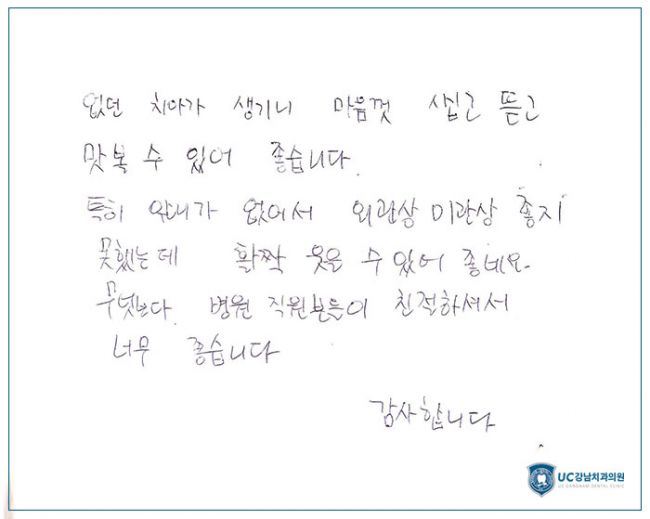 없던 치아가 생기니 마음껏 씹고 뜯고
맛볼 수 있어 좋습니다.
특히 앞니가 없어서 외관상 미관상 좋지
못했는데 활짝 웃을 수 있어 좋네요.
무엇보다. 병원 직원분들이 친절하셔서
너무 좋습니다
감사합니다
UC강남치과의원
UC GANGNAM DENTAL CLINIC